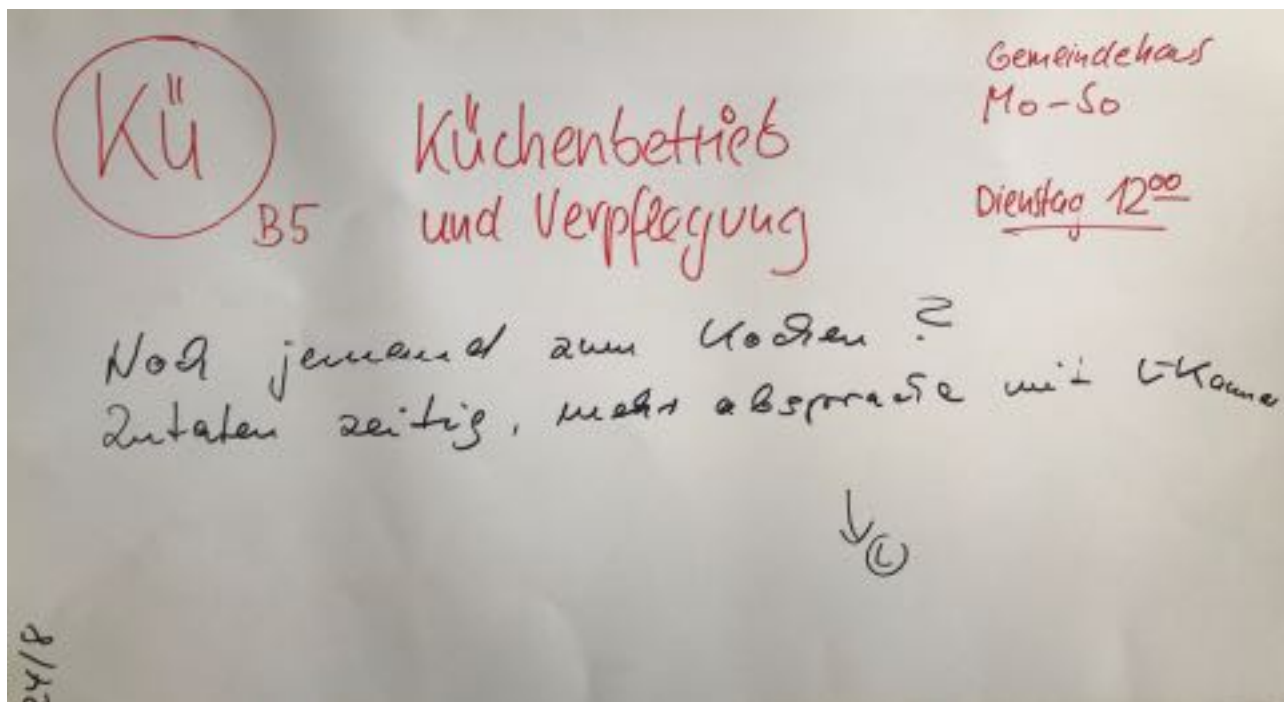 Kü
B5
Küchenbetrieb
und Verpflegung
Gemeindehaus
Mo-So
Dienstag 12⁰⁰
Noch jemand zum Kochen?
Zutaten zeitig, mehr absprache mit
↓ L
24/8